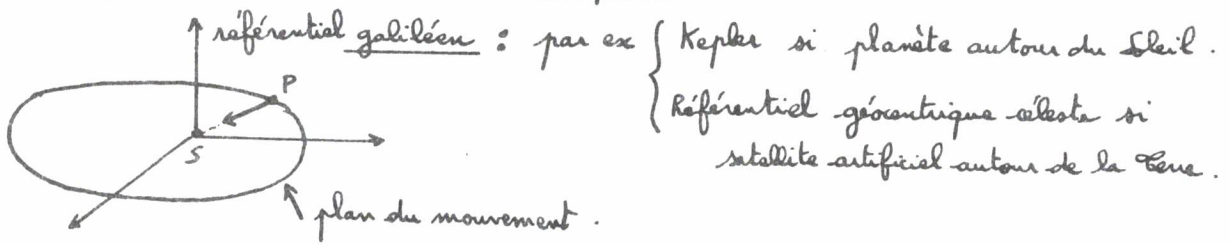 référentiel galiléen : par ex { Kepler si planète autour du Soleil.
Référentiel géocentrique céleste si
satellite artificiel autour de la Terre.
P
S
plan du mouvement.